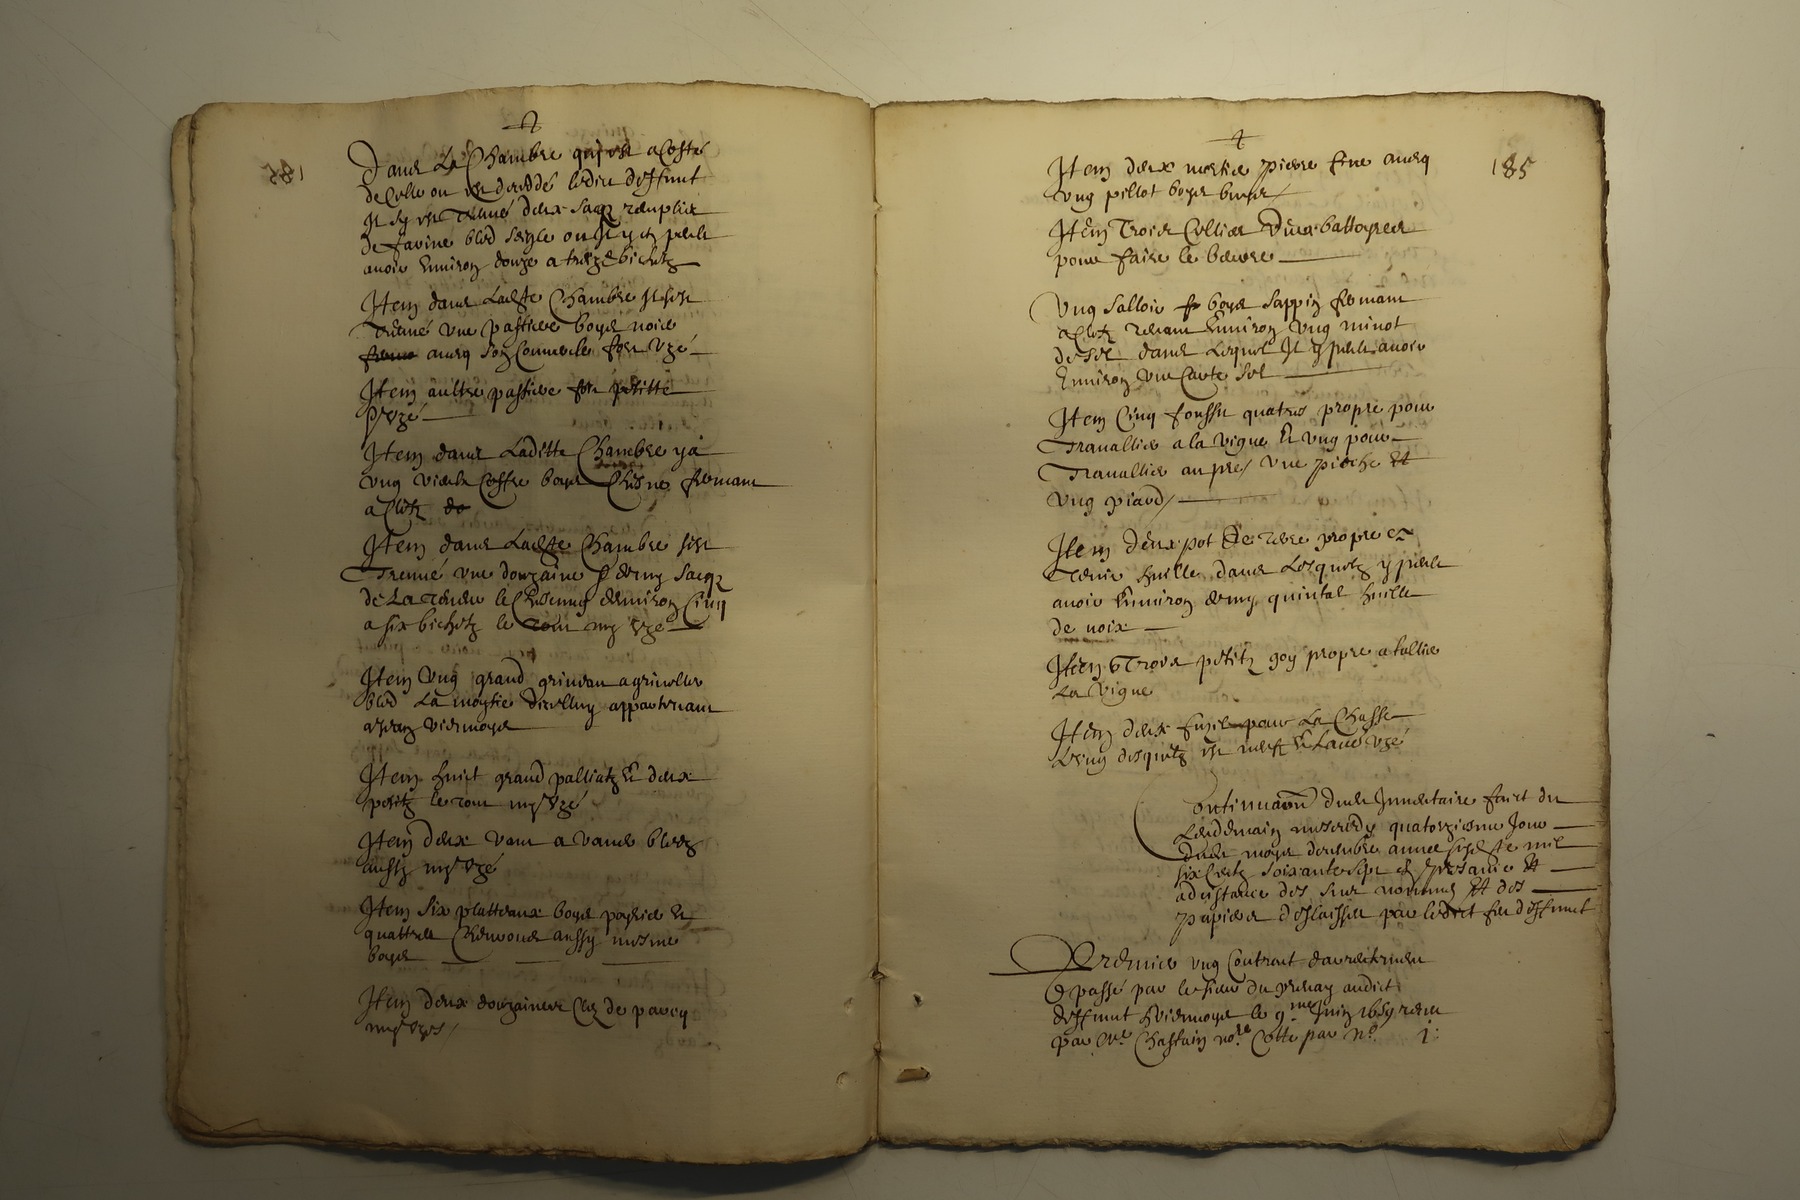 Dans La Chambre qui est a Costé
de Celle ou est decedé ledict deffunt
Il sy est treuvé deux sacqz remplir
de farine bled seigle ou Il y at peult
avoir Environ douze a treze bichetz
Item dans Ladste Chambre Il sest
treuvé une pastiere boys noir
avecq son Couvercle fort uzé
Item aultre pastiere fort petitte
my uzé
Item dans Laditte Chambre y a
ung vieulx Coffre boys Chesne fermant
a Clefz
Item dans Ladste Chambre sest
Treuvé une douzaine & demy sacqz
de La teneur le Chacung denviron Cinq
a six bichetz le tout my uzé
Item Ung grand grineau a grineller
bled La moytié dicelluy appartenant
a Jean viermoys
Item huict grand palliatz Et deux
petitz le tout my uzé
Item deux vans a vaner bledz
aussy my uzé
Item Six platteaux boys poyrier Et
quattre aussy mesme
boys
Item deux douzaines Clez de parcq
my uzés
185
Item deux mortier pierre fine avecq
ung pillot boys buys
Item Trois Collier Deux battoyres
pour faire le beurre
Ung Salloir boys sappin fermant
a Clefz tenant Environ Ung minot
de Sel dans Lequel Il y peult avoir
Environ une Carte Sel
Item Cinq foussu quatres propre pour
Travallier a la vigne Et ung pour
Travallier au pre, une pioche Et
ung piard
Item deux pot de terre propre a
tenir huille dans Lesquelz y peult
avoir Environ demy quintal huille
de noix
Item Trois petitz goy propre a tallier
La vigne
Item deux fuzil pour La Chasse
Lung desquelz est neuf Et Lautre uzé
Continuaon dudt Inventaire faict du
Lendemain mercredy quatorzieme Jour
dudt moys decembre annee susdte mil
six Centz soixante sept En presance Et
adsistance des sieur nommes Et des
papiers deslaisses par ledict feu deffunct
Premier ung Contract
passé par le sieur du audict
deffunct Viermoys le 9me Juin 1659 receu
par Me Chastain nore Cotté par No 1